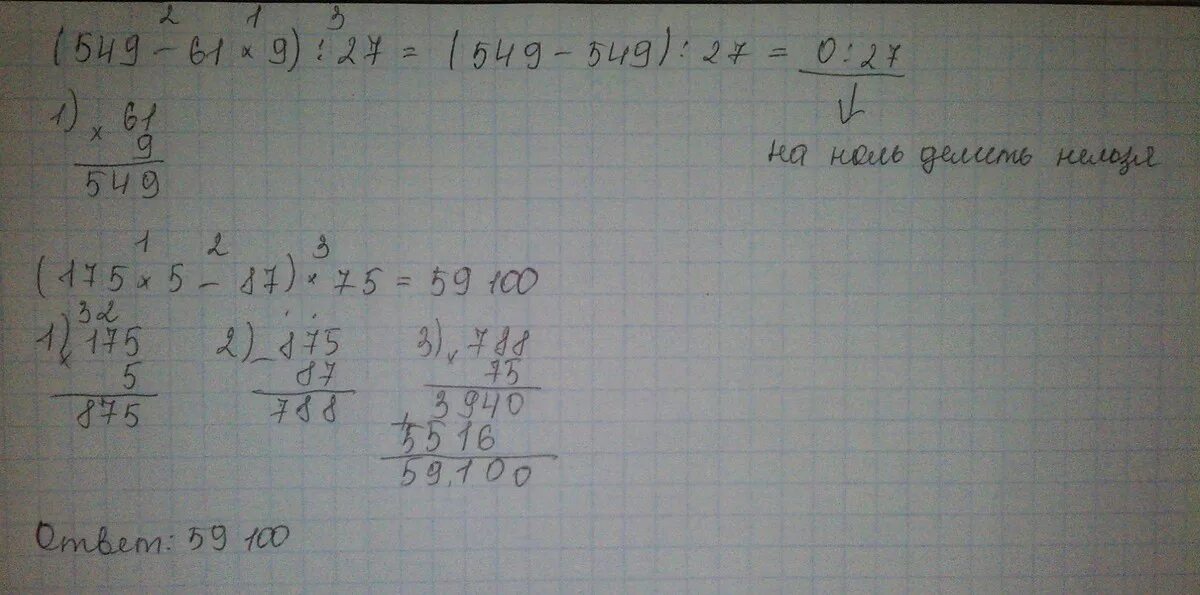 2 1 3
(549 - 61 × 9) : 27 = (549 - 549) : 27 = 0 : 27
на ноль делить нельзя
1) × 61
9
549
1 2 3
(175 × 5 - 87) × 75 = 59 100
32
1) × 175
5
875
2) - 875
87
788
3) × 788
75
3940
+ 5516
59.100
Ответ: 59 100